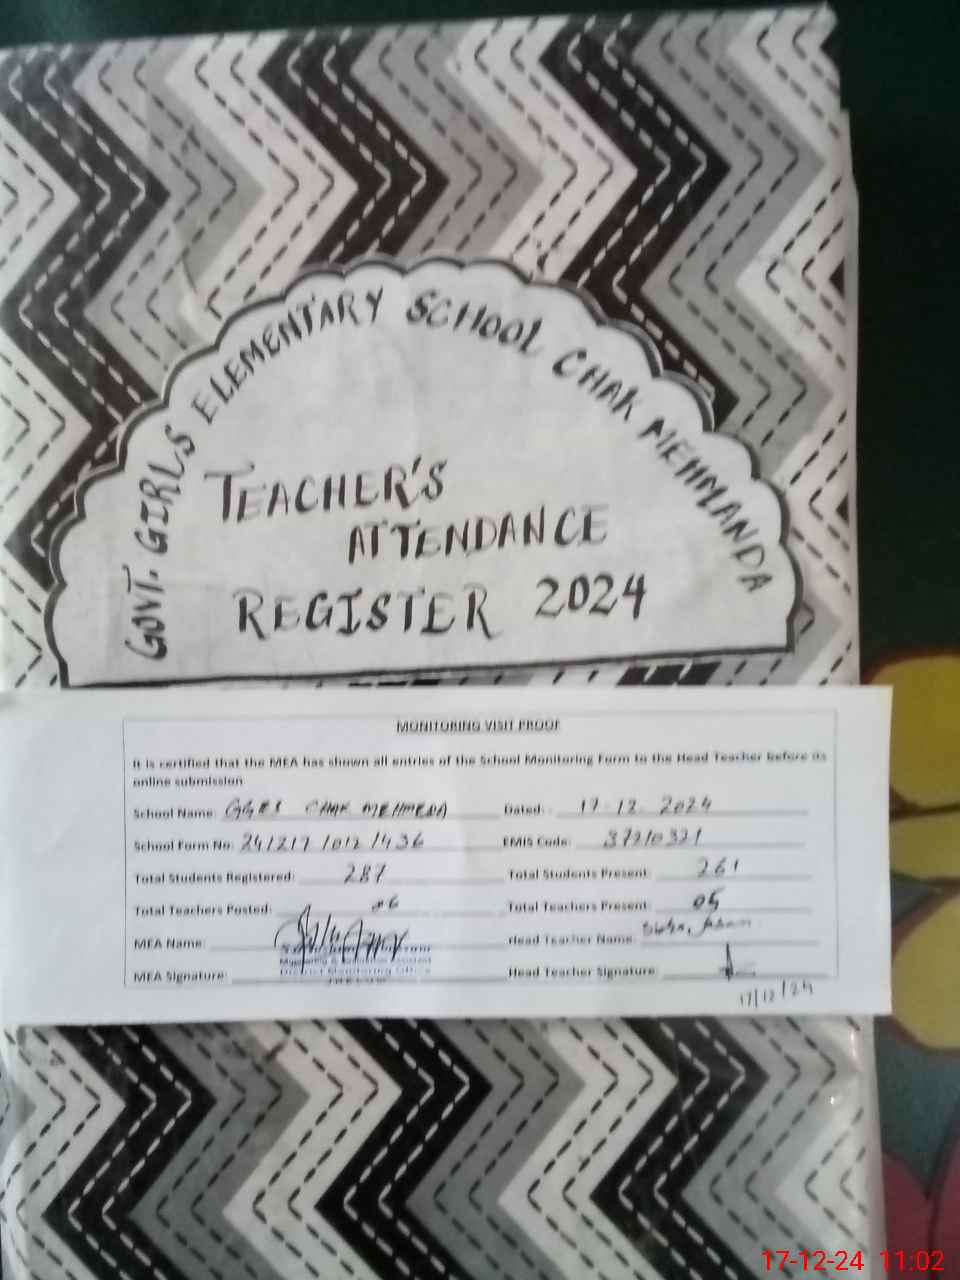 GOVT. GIRLS ELEMENTARY SCHOOL CHAK MEHMLANDA
TEACHER'S
ATTENDANCE
REGISTER 2024
MONITORING VISIT PROOF
It is certified that the MEA has shown all entries of the School Monitoring Form to the Head Teacher before its
online submission
School Name: GGES CHAK MEHMEDA Dated: 17-12-2024
School Form No: 241217/012/436 EMIS Code: 37210321
Total Students Registered: 287 Total Students Present: 261
Total Teachers Posted: 06 Total Teachers Present: 05
MEA Name: Head Teacher Name:
MEA Signature: Head Teacher Signature:
District Monitoring Office
JHELUM
17/12/24
17-12-24 11:02